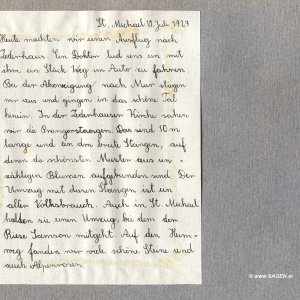 St. Michael 10. Juli 1929
Heute machten wir einen Ausflug nach
Zederhaus. Ein Doktor lud uns ein mit
ihm ein Stück Weg im Auto zu fahren.
Bei der Abzweigung nach Mur stiegen
wir aus und gingen in das schöne Tal
hinein. In der Zederhauser Kirche sahen
wir die Prangerstangen. Das sind 10 m
lange und ein dm breite Stangen, auf
denen die schönsten Muster aus un-
zähligen Blumen aufgebunden sind. Der
Umzug mit diesen Stangen ist ein
alter Volksbrauch. Auch in St. Michael
halten sie einen Umzug, bei dem der
Riese Samson mitgeht. Auf den Heim-
weg fanden wir viele schöne Steine und
auch Alpenrosen.
© www.SAGEN.at